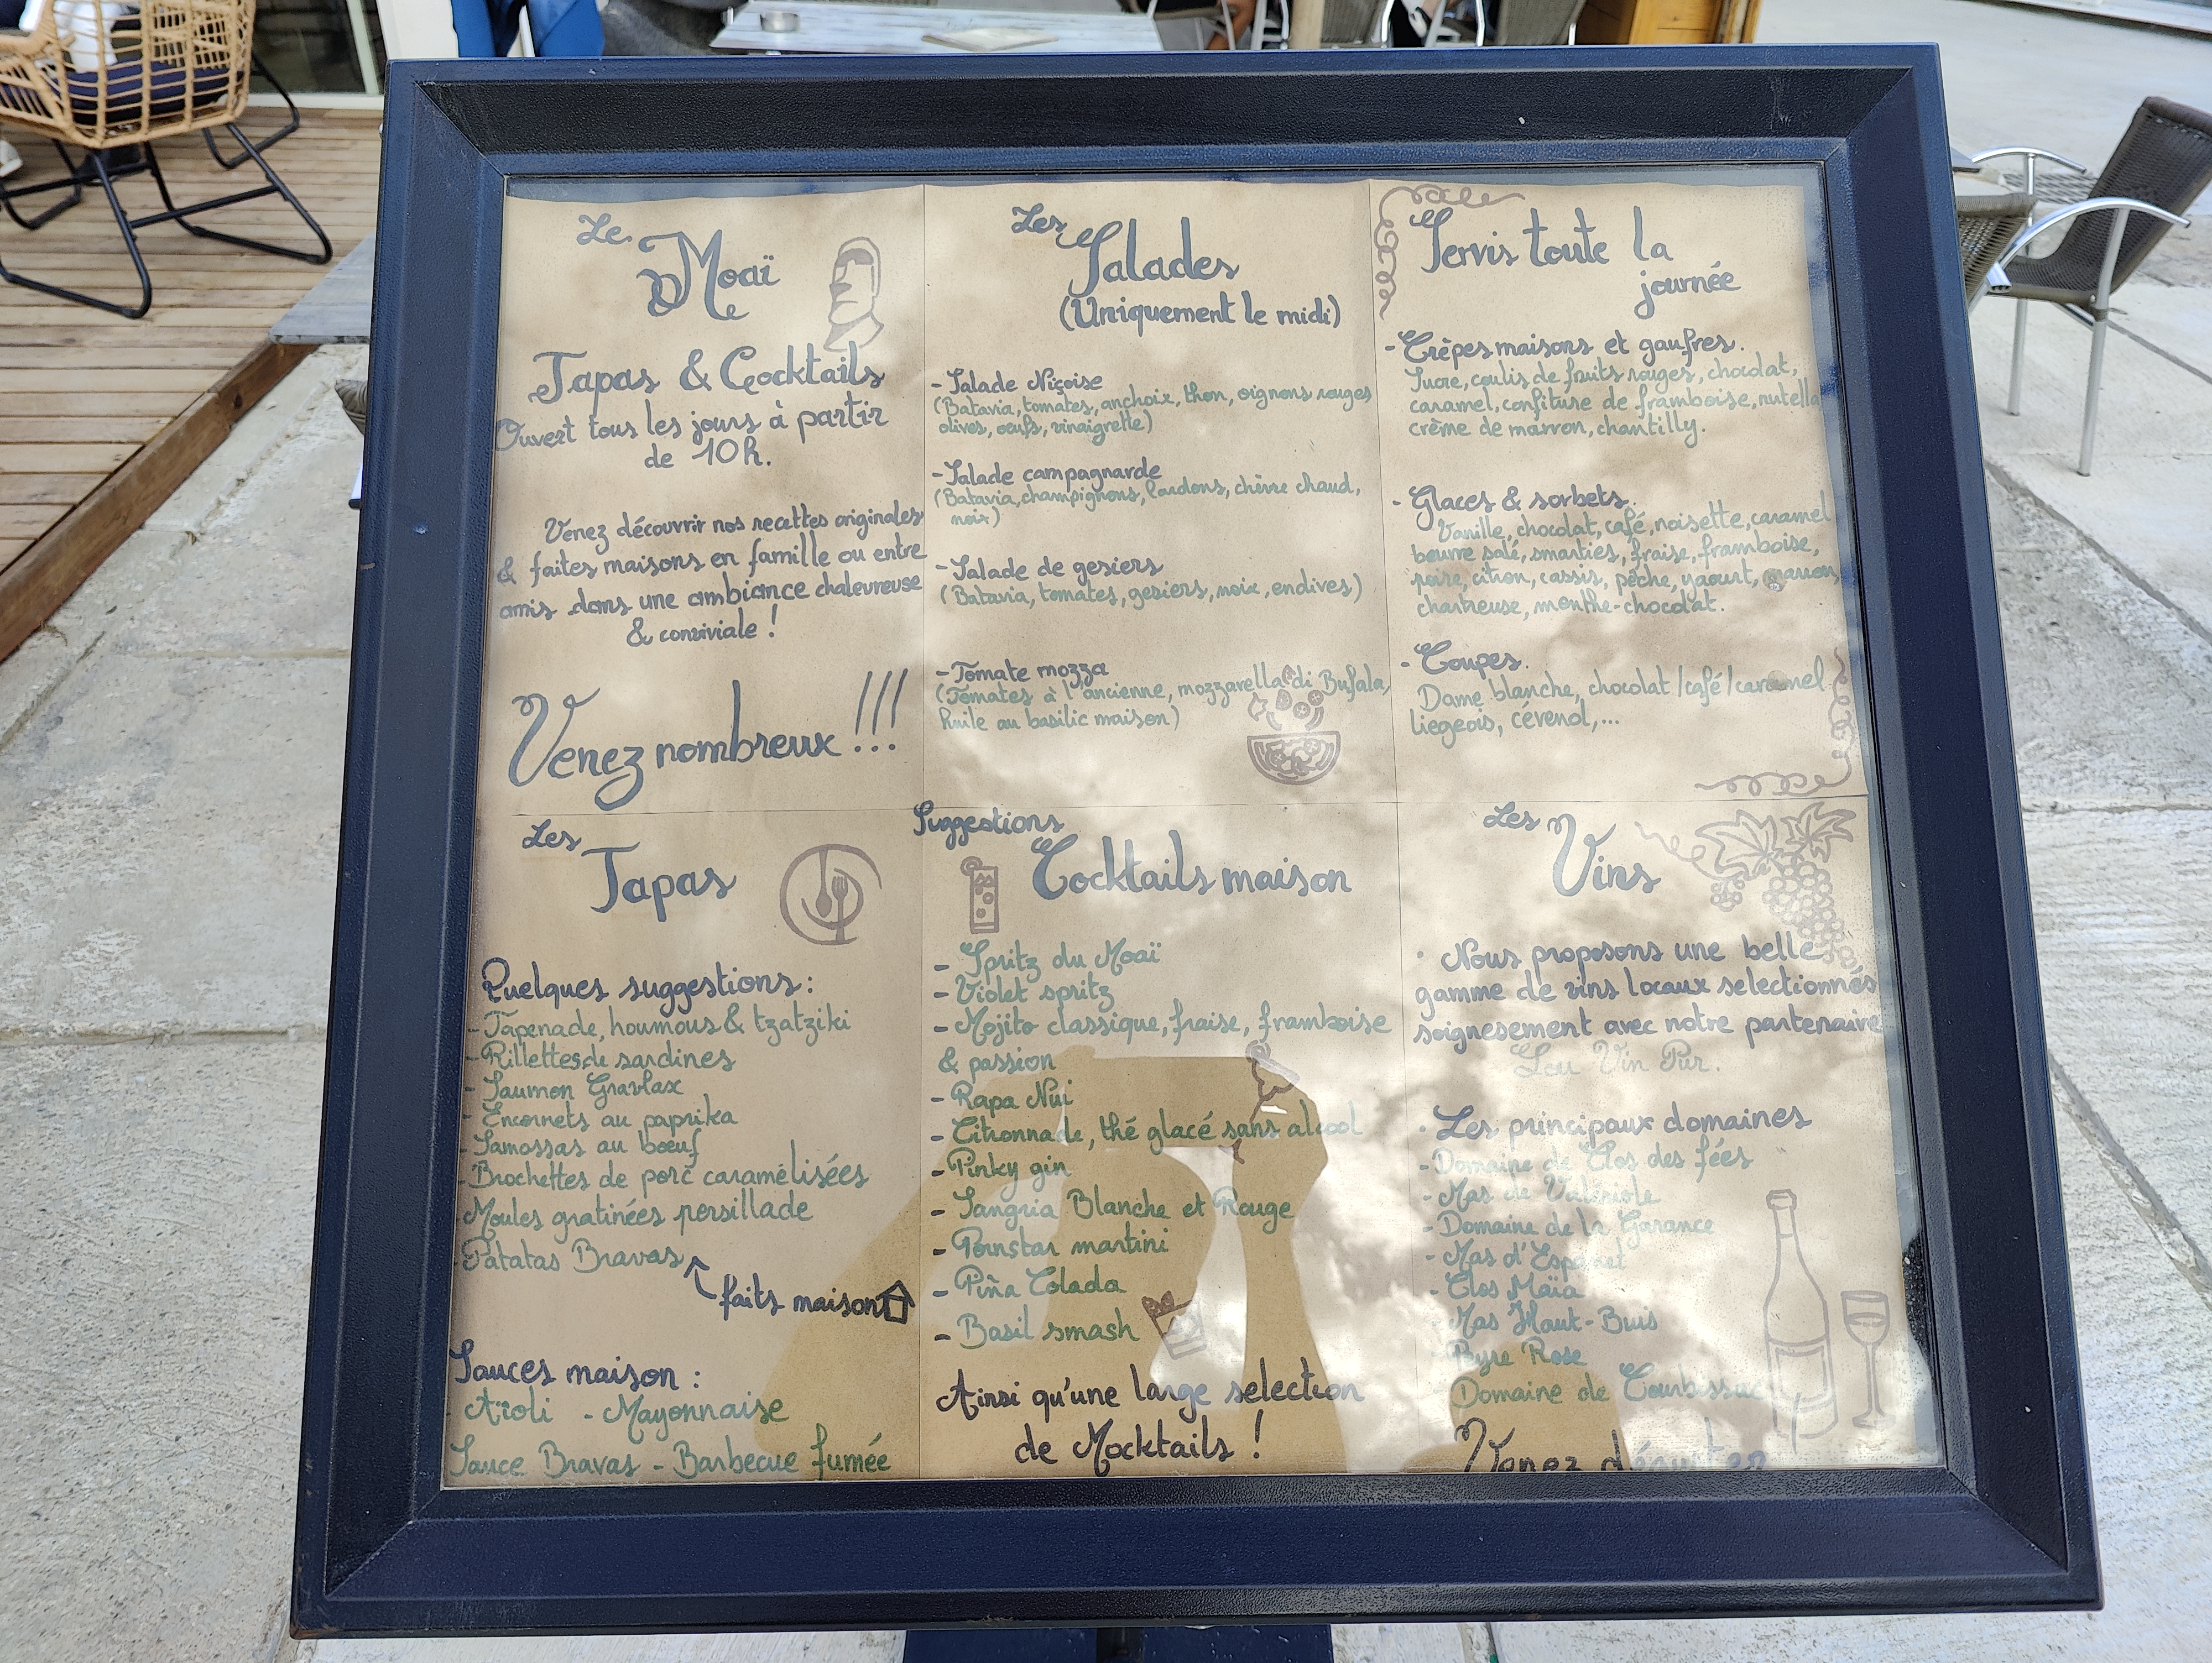 Le
Moaï
Tapas & Cocktails
Ouvert tous les jours à partir
de 10h.
Venez découvrir nos recettes originales
& faites maisons en famille ou entre
amis dans une ambiance chaleureuse
& conviviale !
Venez nombreux !!!
Les
Salades
(Uniquement le midi)
- Salade Niçoise
(Batavia, tomates, anchoix, thon, oignons rouges
olives, oeufs, vinaigrette)
- Salade campagnarde
(Batavia, champignons, lardons, chèvre chaud,
noix)
- Salade de gesiers
(Batavia, tomates, gesiers, noix, endives)
- Tomate mozza
(Tomates à l'ancienne, mozzarella di Bufala,
huile au basilic maison)
Servis toute la
journée
- Crêpes maisons et gaufres.
Sucre, coulis de fruits rouges, chocolat,
caramel, confiture de framboise, nutella
crème de marron, chantilly.
- Glaces & sorbets.
Vanille, chocolat, café, noisette, caramel
beurre salé, smarties, fraise, framboise,
poire, citron, cassis, pêche, yaourt, marron,
chartreuse, menthe-chocolat.
- Coupes.
Dame blanche, chocolat/café/caramel
liegeois, cévenol,...
Les
Tapas
Quelques suggestions :
- Tapenade, houmous & tzatziki
- Rillettes de sardines
- Saumon Gravlax
- Encornets au paprika
- Samossas au bœuf
- Brochettes de porc caramélisées
- Moules gratinées persillade
- Patatas Bravas
faits maison
Sauces maison :
- Aïoli - Mayonnaise
Sauce Bravas - Barbecue fumée
Suggestions
Cocktails maison
- Spritz du Moaï
- Violet spritz
- Mojito classique, fraise, framboise
& passion
- Rapa Nui
- Citronnade, thé glacé sans alcool
- Pinky gin
- Sangria Blanche et Rouge
- Pornstar martini
- Piña Colada
- Basil smash
Ainsi qu'une large selection
de Mocktails !
Les
Vins
· Nous proposons une belle
gamme de vins locaux selectionnés
soignesement avec notre partenaire
Lou Vin Pur.
· Les principaux domaines
- Domaine de Clos des fées
- Mas de
- Domaine de la Garance
- Mas d'Espanet
- Clos Maïa
- Mas Haut-Buis
- Peyre Rose
- Domaine de Courbissac
Venez déguster